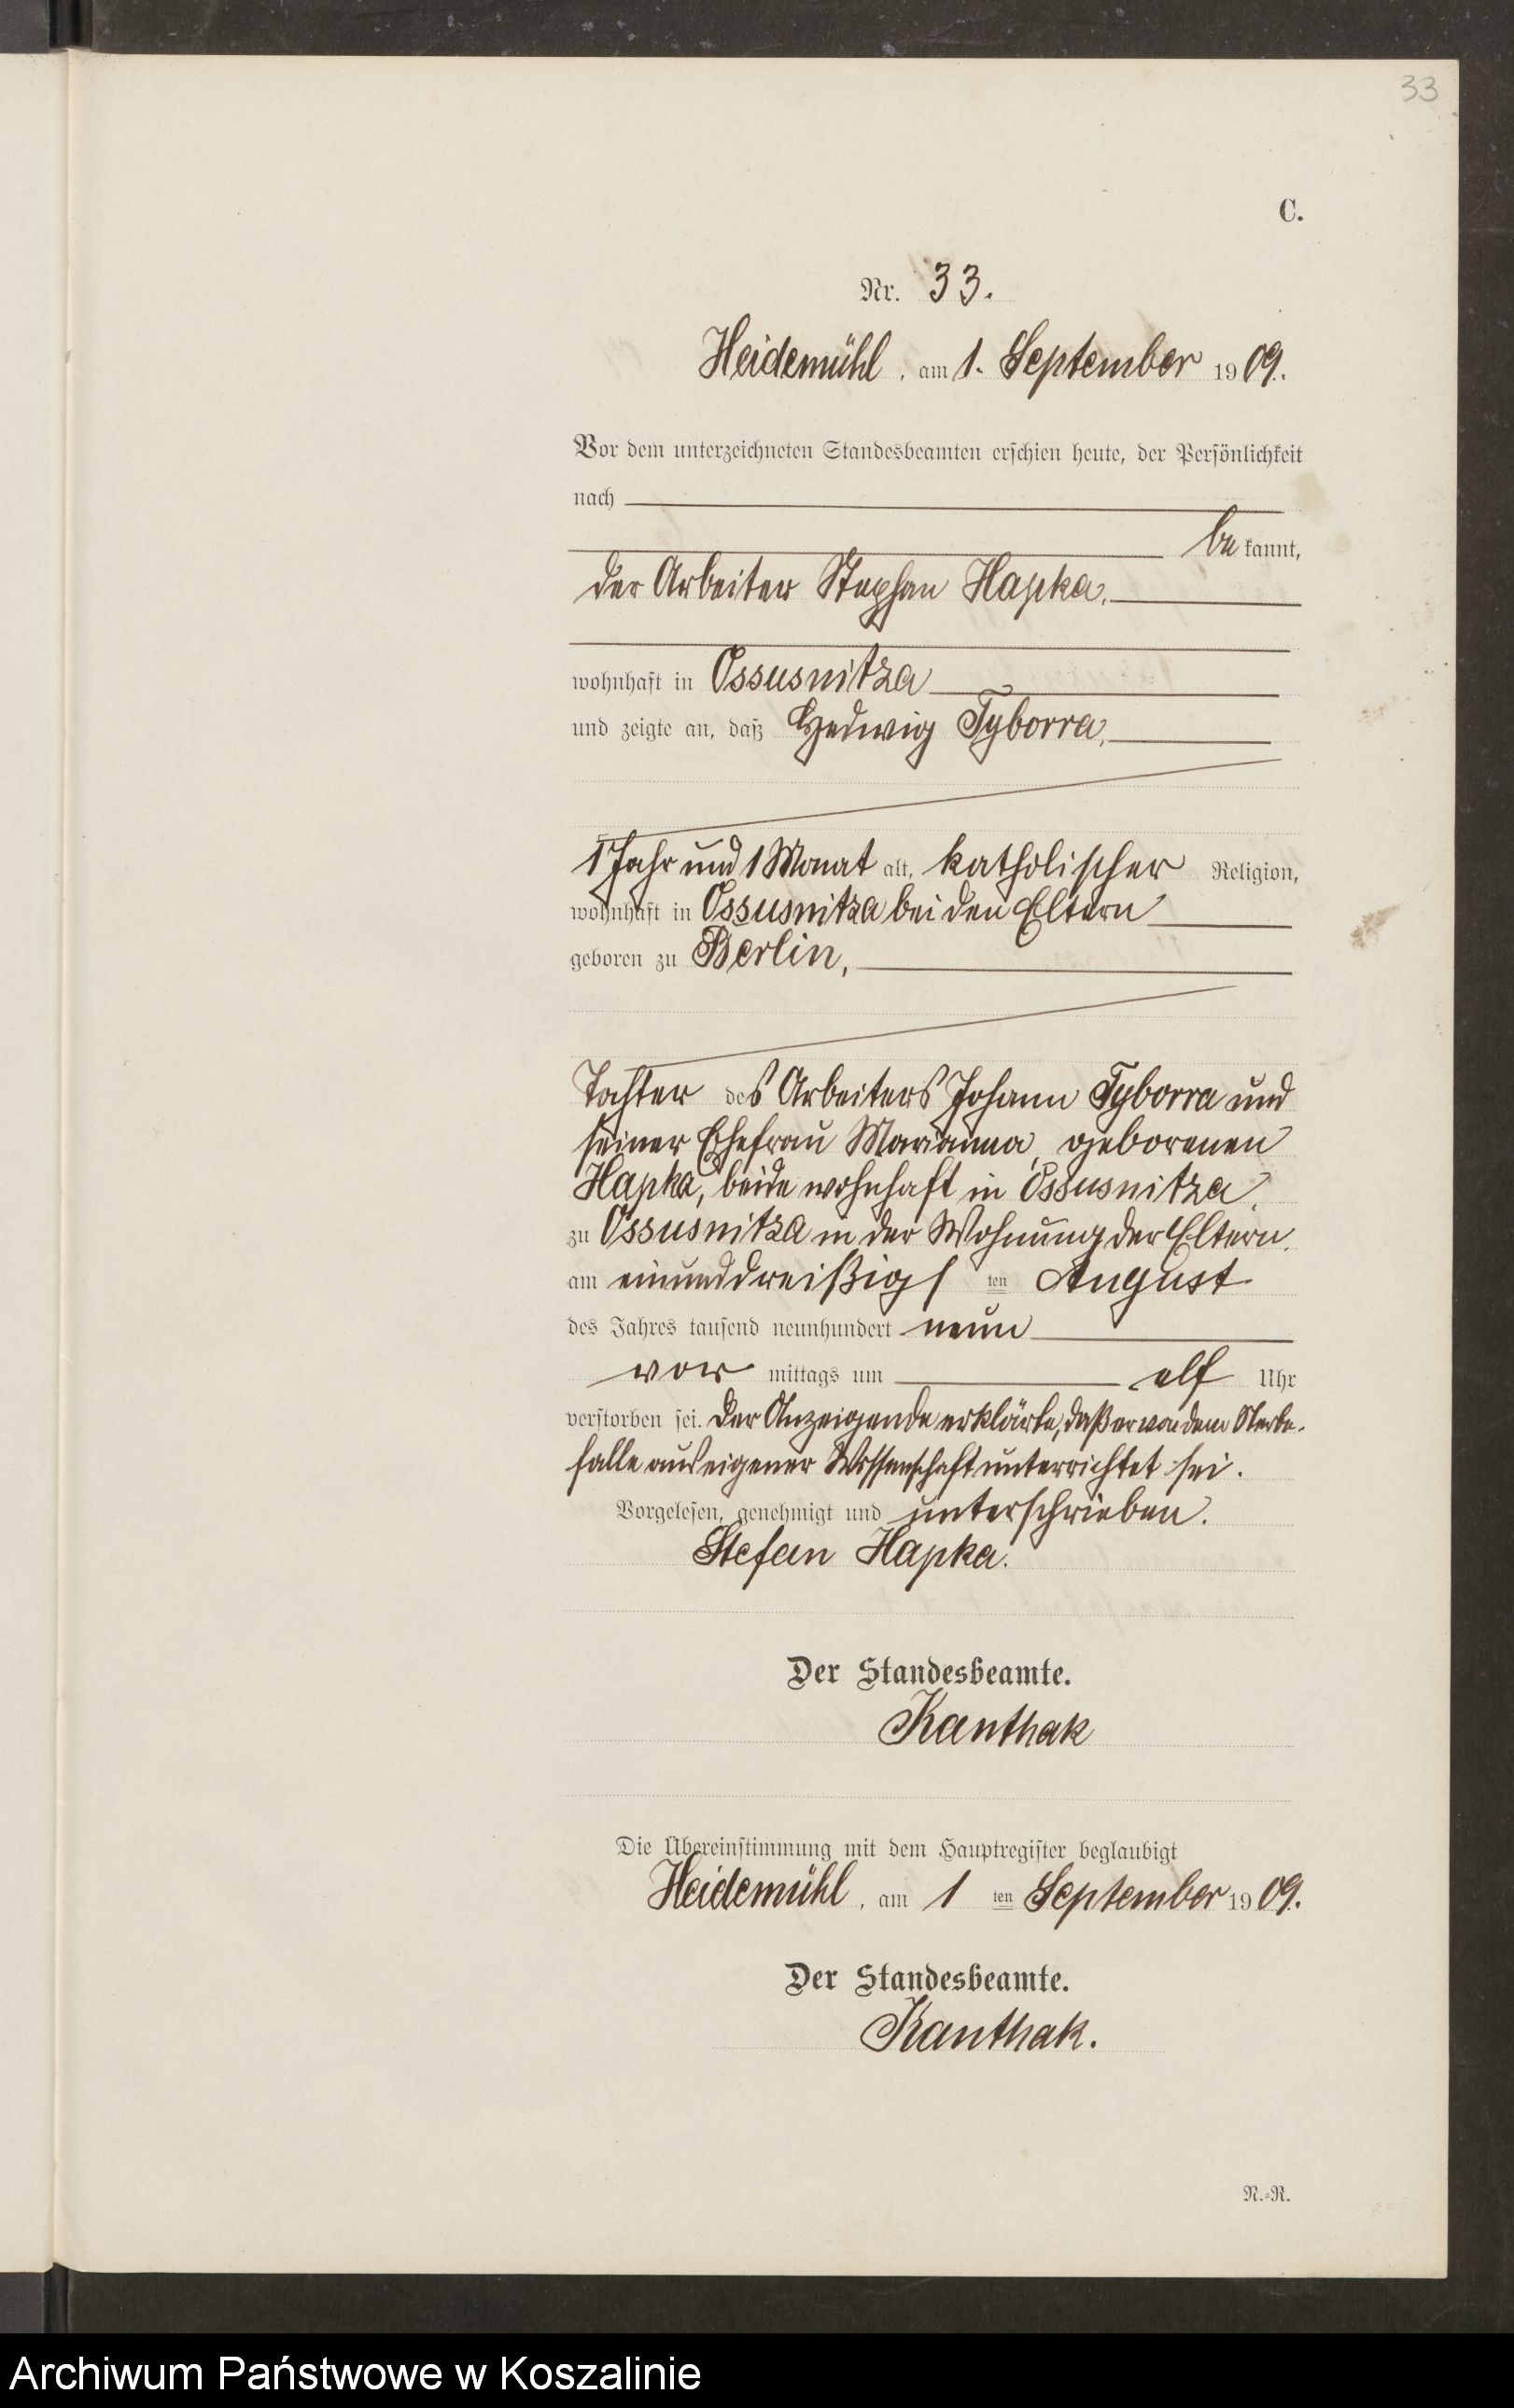 33
C.
Nr. 33.
Heidemühl, am 1. September 1909.
Vor dem unterzeichneten Standesbeamten erschien heute, der Persönlichkeit
nach
be kannt,
der Arbeiter Stephan Hapka,
wohnhaft in Ossusnitza
und zeigte an, daß Hedwig Tyborra,
1 Jahr und 1 Monat alt, katholischer Religion,
wohnhaft in Ossusnitza bei den Eltern
geboren zu Berlin,
Tochter des Arbeiters Johann Tyborra und
seiner Ehefrau Marianna, geborenen
Hapka, beide wohnhaft in Ossusnitza,
zu Ossusnitza in der Wohnung der Eltern,
am einunddreißigsten August
des Jahres tausend neunhundert neun
vor mittags um elf Uhr
verstorben sei. Der Anzeigende erklärte, daß er von dem Sterbe-
falle aus eigener Wissenschaft unterrichtet sei.
Vorgelesen, genehmigt und unterschrieben.
Stefan Hapka.
Der Standesbeamte.
Kanthak
Die Übereinstimmung mit dem Hauptregister beglaubigt
Heidemühl, am 1 ten September 1909.
Der Standesbeamte.
Kanthak.
N.-R.
Archiwum Państwowe w Koszalinie